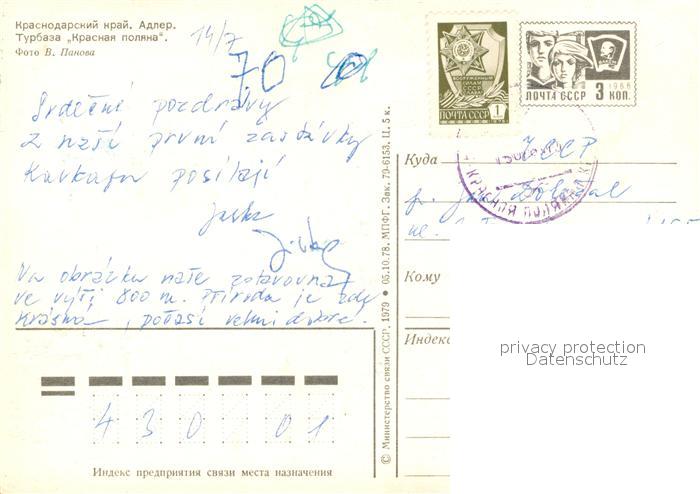 Краснодарский край. Адлер.
Турбаза „Красная поляна".
Фото В. Панова
14/7
70
Srdečné pozdravy
z naší první zastávky
Kavkazu posílají
Na obrázku naše zotavovna
ve výši 800 m. Příroda je zde
krásná, počasí velmi dobré.
ВООРУЖЕННЫМ
СИЛАМ
СССР
СЛАВА
ПОЧТА СССР 1
ПОЧТА СССР 3 КОП.
1966
КРАСНАЯ ПОЛЯНА
Куда ЧССР
Кому
Индекс
privacy protection
Datenschutz
430 01
Индекс предприятия связи места назначения
© Министерство связи СССР, 1979 ● 05.10.78. МПФГ. Зак. 79-6153. Ц. 5 к.